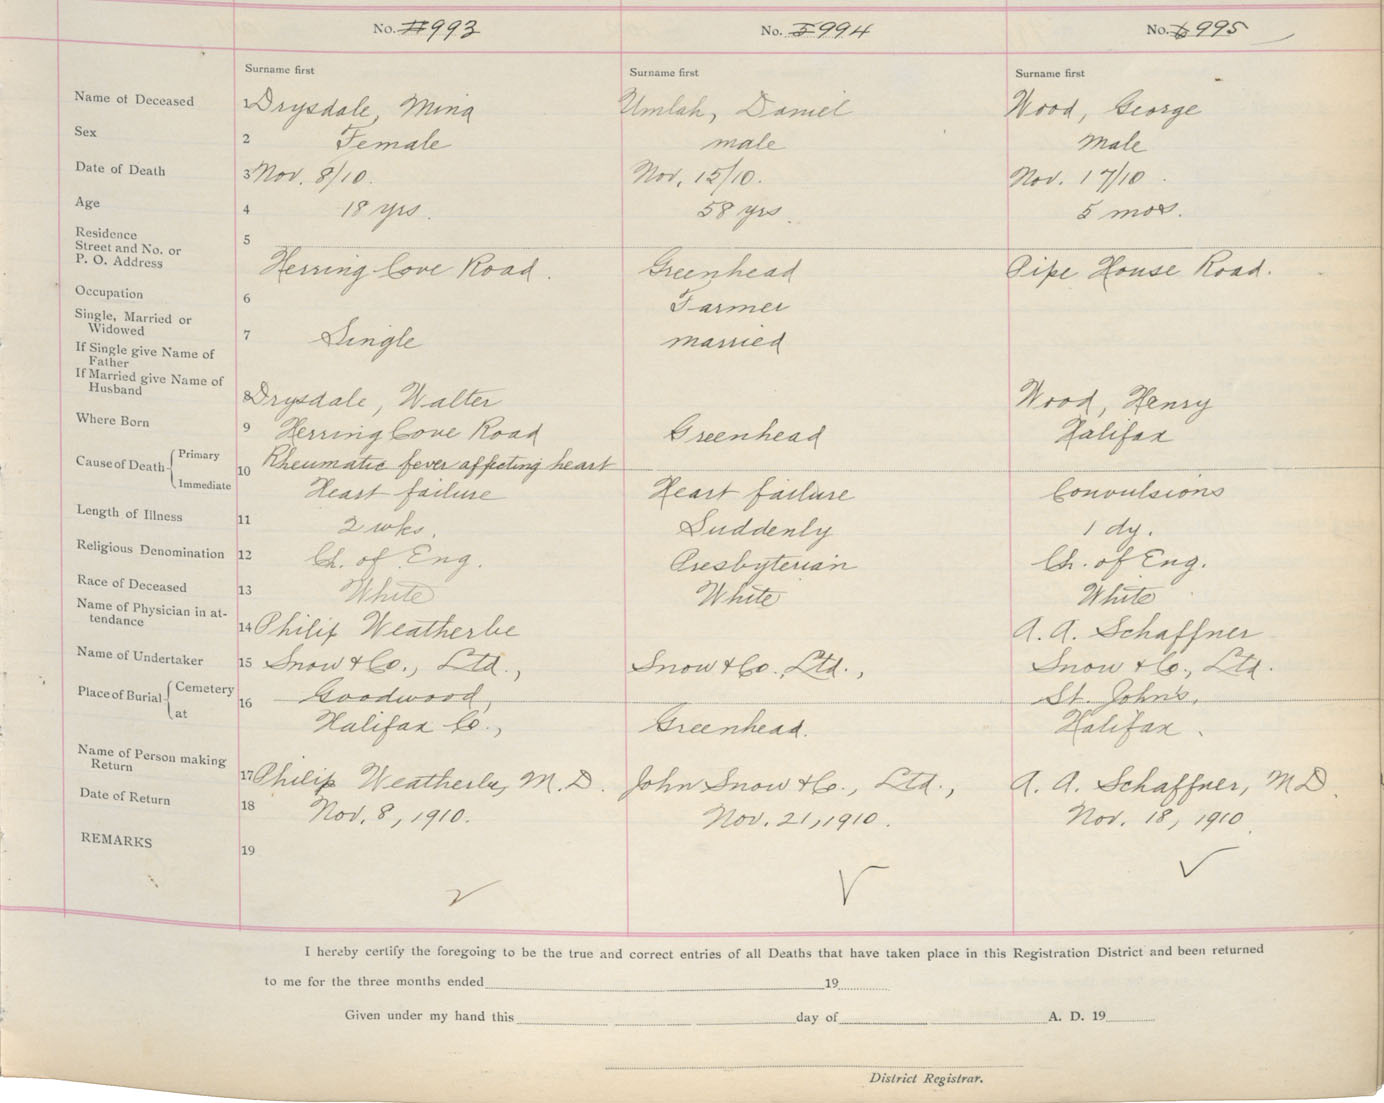 No. 4 993 No. 5 994 No. 6 995
Surname first Surname first Surname first
Name of Deceased 1 Drysdale, Mina Umlah, Daniel Wood, George
Sex 2 Female male Male
Date of Death 3 Nov. 8/10. Nov. 15/10. Nov. 17/10.
Age 4 18 yrs. 58 yrs. 5 mos.
Residence 5
Street and No. or
P. O. Address Herring Cove Road. Greenhead Pipe House Road.
Occupation 6 Farmer
Single, Married or
Widowed 7 Single married
If Single give Name of
Father
If Married give Name of
Husband 8 Drysdale, Walter Wood, Henry
Where Born 9 Herring Cove Road Greenhead Halifax
Cause of Death Primary 10 Rheumatic fever affecting heart
Immediate Heart failure Heart failure Convulsions
Length of Illness 11 2 wks. Suddenly 1 dy.
Religious Denomination 12 Ch. of Eng. Presbyterian Ch. of Eng.
Race of Deceased 13 White White White
Name of Physician in at-
tendance 14 Philip Weatherbe A. A. Schaffner
Name of Undertaker 15 Snow & Co., Ltd., Snow & Co. Ltd., Snow & Co., Ltd.
Place of Burial Cemetery 16 Goodwood, St. John's,
at Halifax Co., Greenhead. Halifax.
Name of Person making
Return 17 Philip Weatherbe, M.D. John Snow & Co., Ltd., A. A. Schaffner, M.D.
Date of Return 18 Nov. 8, 1910. Nov. 21, 1910. Nov. 18, 1910.
REMARKS 19
I hereby certify the foregoing to be the true and correct entries of all Deaths that have taken place in this Registration District and been returned
to me for the three months ended 19
Given under my hand this day of A. D. 19
District Registrar.